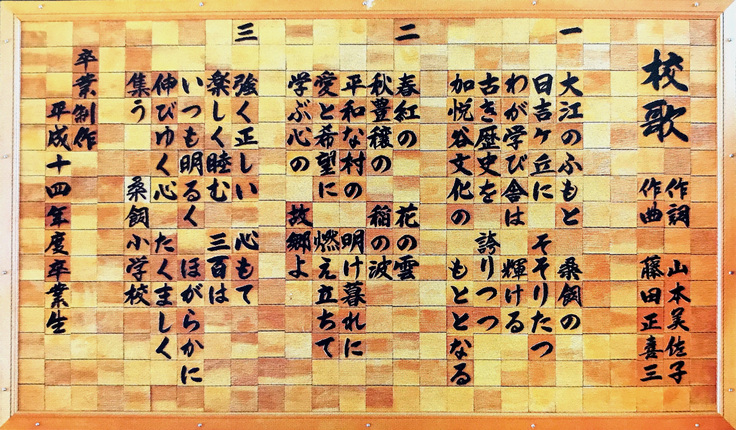 校歌
作詞 山本美佐子
作曲 藤田正喜三
一
大江のふもと 桑飼の
日吉ヶ丘に そそりたつ
わが学び舎は 輝ける
古き歴史を 誇りつつ
加悦谷文化の もととなる
二
春紅の 花の雲
秋豊穣の 稲の波
平和な村の 明け暮れに
愛と希望に 燃え立ちて
学ぶ心の 故郷よ
三
強く正しい 心もて
楽しく睦む 三百は
いつも明るく ほがらかに
伸びゆく心 たくましく
集う 桑飼小学校
卒業制作
平成十四年度卒業生